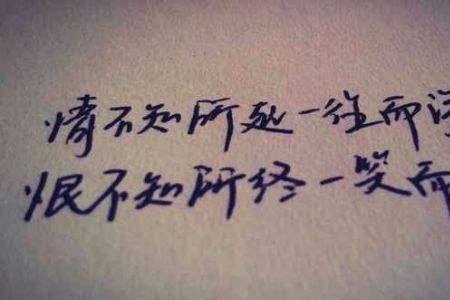 情不知所起一往而
恨不知所终一笑而